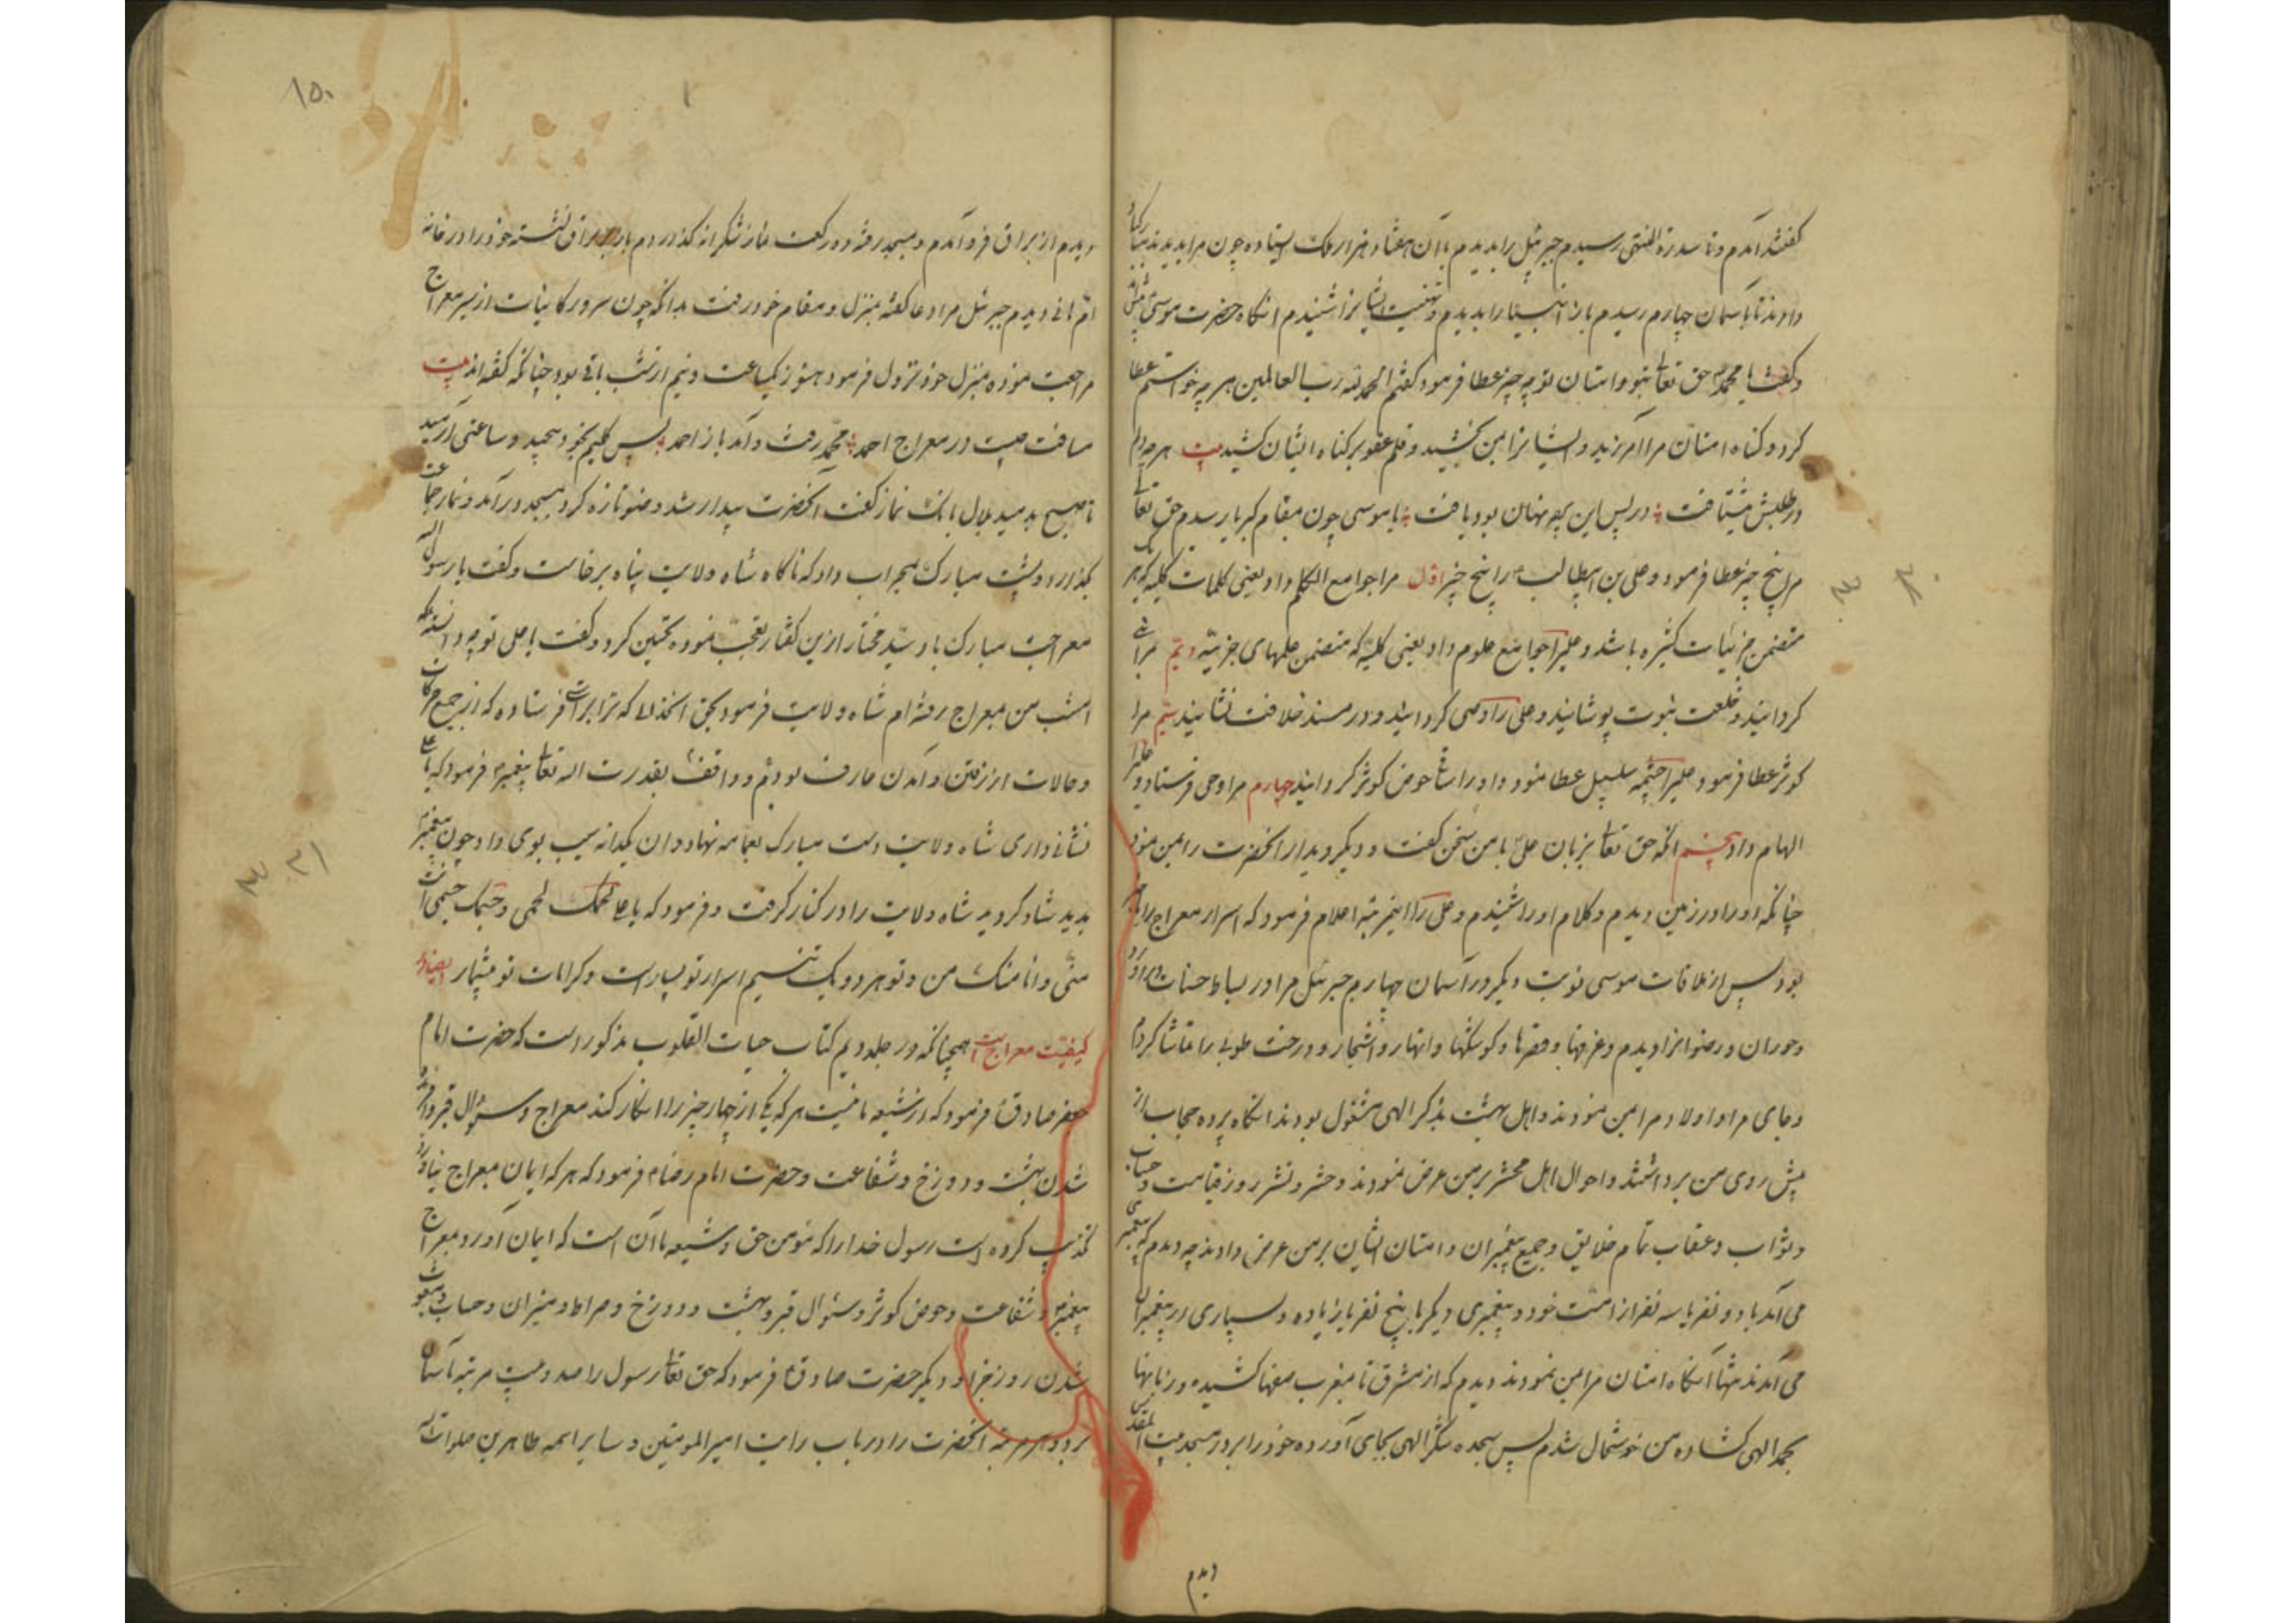 گفتند آمدم و تا سدرة المنتهی رسیدم جبرئیل را بدیدم با آن هفتاد هزار ملک ایستاده چون مرا بدیدند مبارکباد
دادند تا بآسمان چهارم رسیدم باز انبیا را بدیدم و تهنیت ایشانرا شنیدم انگاه حضرت موسی پیش آمد
و گفت یا محمد حق تعالی بتو و امتان تو چه چیز عطا فرمود گفتم الحمد لله رب العالمین هر چه خواستم عطا
کرد و گناه امتان مرا آمرزید و ایشانرا بمن بخشید و قلم عفو بر گناه ایشان کشید بیت هر چه دلم
در طلبش میشتافت در پس این پرده نهان بود یافت یا موسی چون بمقام کبریا رسیدم حق تعالی
مرا پنج چیز عطا فرمود و علی بن ابیطالب را پنج چیز اول مرا جوامع الکلم داد یعنی کلمات کلیه که هر یک
متضمن جزئیات کثیره باشد و علیرا جوامع علوم داد یعنی کلیه که متضمن علمهای جزئیه دویم مرا نبی
گردانید و خلعت نبوت پوشانید و علی را وصی گردانید و در مسند خلافت نشانید سیم مرا
کوثر عطا فرمود و علیرا چشمه سلسبیل عطا نمود و او را ساقی حوض کوثر گردانید چهارم مرا وحی فرستاد و علیرا
الهام داد پنجم انکه حق تعالی بزبان علی با من سخن گفت و دیگر دیدار انحضرت را بمن نمود
چنانکه او را در زمین دیدم و کلام او را شنیدم و علی را اینمرتبه اعلام فرمود که اسرار معراج را
بود پس از ملاقات موسی نوبت دیگر در آسمان چهارم جبرئیل مرا در بساط جنات در آورد
و حوران و رضوانرا دیدم و غرفها و قصرها و کوشکها و انهار و اشجار و درخت طوبی را تماشا کردم
و جای مرا و اولاد مرا بمن نمودند و اهل بهشت بذکر الهی مشغول بودند انگاه پرده حجاب از
پیش روی من برداشتند و احوال اهل محشر بر من عرض نمودند و حشر و نشر روز قیامت و حساب
و ثواب و عقاب تمام خلایق و جمیع پیغمبران و امتان ایشان بر من عرض دادند چه دیدم که پیغمبری
می آمد با دو نفر یا سه نفر از امت خود و پیغمبری دیگر با پنج نفر یا زیاده و بسیاری از پیغمبران
می آمدند تنها انگاه امتان مرا بمن نمودند دیدم که از مشرق تا مغرب صفها کشیده و زبانها
بحمد الهی گشاده من خوشحال شدم پس سجده شکر الهی بجای آورده خود را بر در مسجد بیت المقدس
دیدم
۳۰
۱۵۰
۱
دیدم از براق فرو آمدم و بمسجد رفته دو رکعت نماز شکرانه گذاردم باز بر براق نشسته خود را در خانه
ام هانی دیدم جبرئیل مرا دعا گفته بمنزل و مقام خود رفت بدانکه چون سرور کاینات از سیر معراج
مراجعت نموده بمنزل خود نزول فرمود هنوز یکساعت و نیم از شب باقی بود چنانکه گفته اند بیت
مسافت چیست در معراج احمد محمد رفت و آمد باز احمد پس گلیم بخود پیچید و ساعتی آرمید
تا صبح بدمید بلال بانک نماز گفت انحضرت بیدار شد وضو تازه کرد بمسجد در آمد و نماز جماعت
بگذارد و پشت مبارک بمحراب داد که ناگاه شاه ولایت پناه برخاست و گفت یا رسول الله
معراجت مبارک باد سید مختار ازین گفتار تعجب نموده تحسین کرد و گفت یا علی تو چه دانسته که
امشب من بمعراج رفته ام شاه ولایت فرمود بحق انخدا که ترا براستی فرستاده که از جمیع حرکات
و حالات از رفتن و آمدن عارف بودم و واقف بقدرت اله تعالی پیغمبر فرمود که یا علی
نشانی داری شاه ولایت دست مبارک بعمامه نهاد و ان یکدانه سیب بوی داد چون پیغمبر
بدید شاد گردید شاه ولایت را در کنار گرفت و فرمود که یا علی لحمک لحمی و جسمک جسمی انت
منی و انا منک من و تو هر دو یک تنیم اسرار تو بسیار است و کرامات تو بیشمار
کیفیت معراج است همچنانکه در جلد دویم کتاب حیات القلوب مذکور است که حضرت امام
جعفر صادق فرمود که از شیعه ما نیست هر که یکی از چهار چیز را انکار کند معراج و سؤال قبر و آفریده
شدن بهشت و دوزخ و شفاعت و حضرت امام رضا فرمود که هر که ایمان بمعراج نیاورد
تکذیب کرده است رسول خدا را که مؤمن حق و شیعه ما آن است که ایمان آورد بمعراج
پیغمبر و شفاعت و حوض کوثر و سئوال قبر و بهشت و دوزخ و صراط و میزان و حساب و مبعوث
شدن روز جزا و دیگر حضرت صادق فرمود که حق تعالی رسول را صد و بیست مرتبه بآسمان
برد و هر مرتبه انحضرت را در باب ولایت امیر المومنین و سایر ائمه طاهرین صلوات الله
۳۱